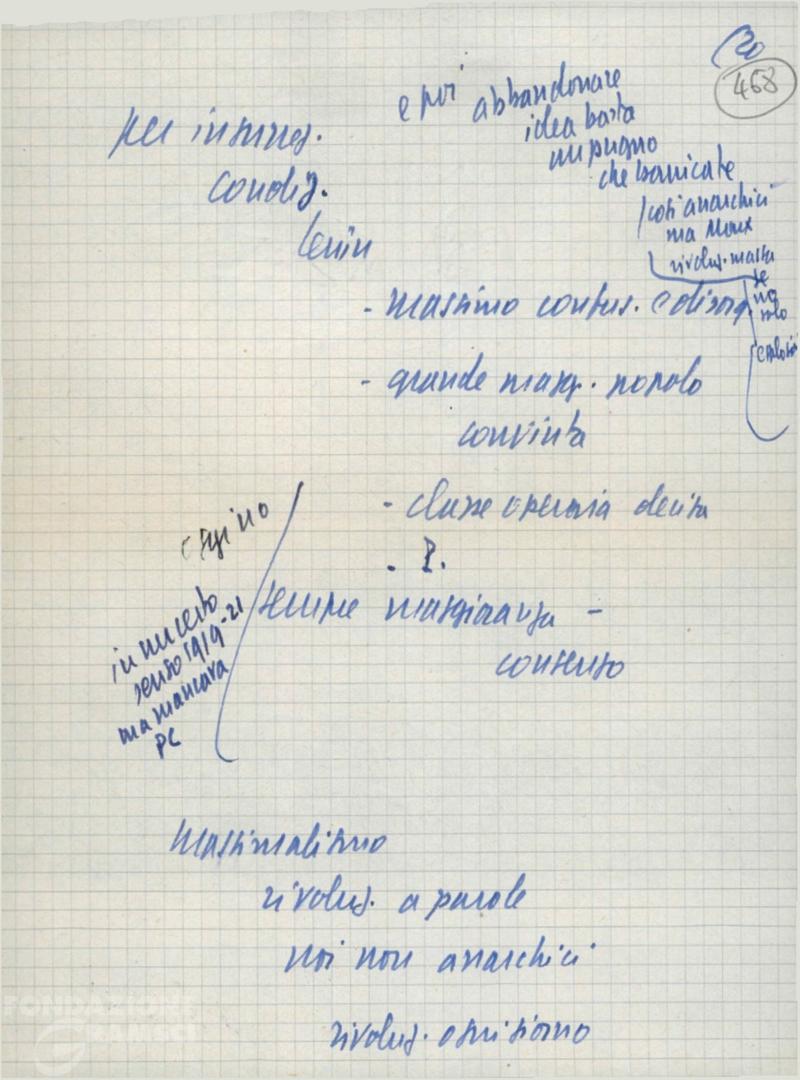 20
468
e poi abbandonare
idea basta
un pugno
che barricate
così anarchici
ma Marx
rivoluz. massa
se
no
solo
per insurrez.
condiz.
Lenin
- massimo confus. e disorg.
- grande magg. popolo
convinta
- classe operaia decisa
- P.
sempre maggioranza -
consenso
in un certo
senso 1919-21
ma mancava
PC
Massimalismo
rivoluz. a parole
noi non anarchici
rivoluz. ogni giorno
FONDAZIONE
GRAMSCI